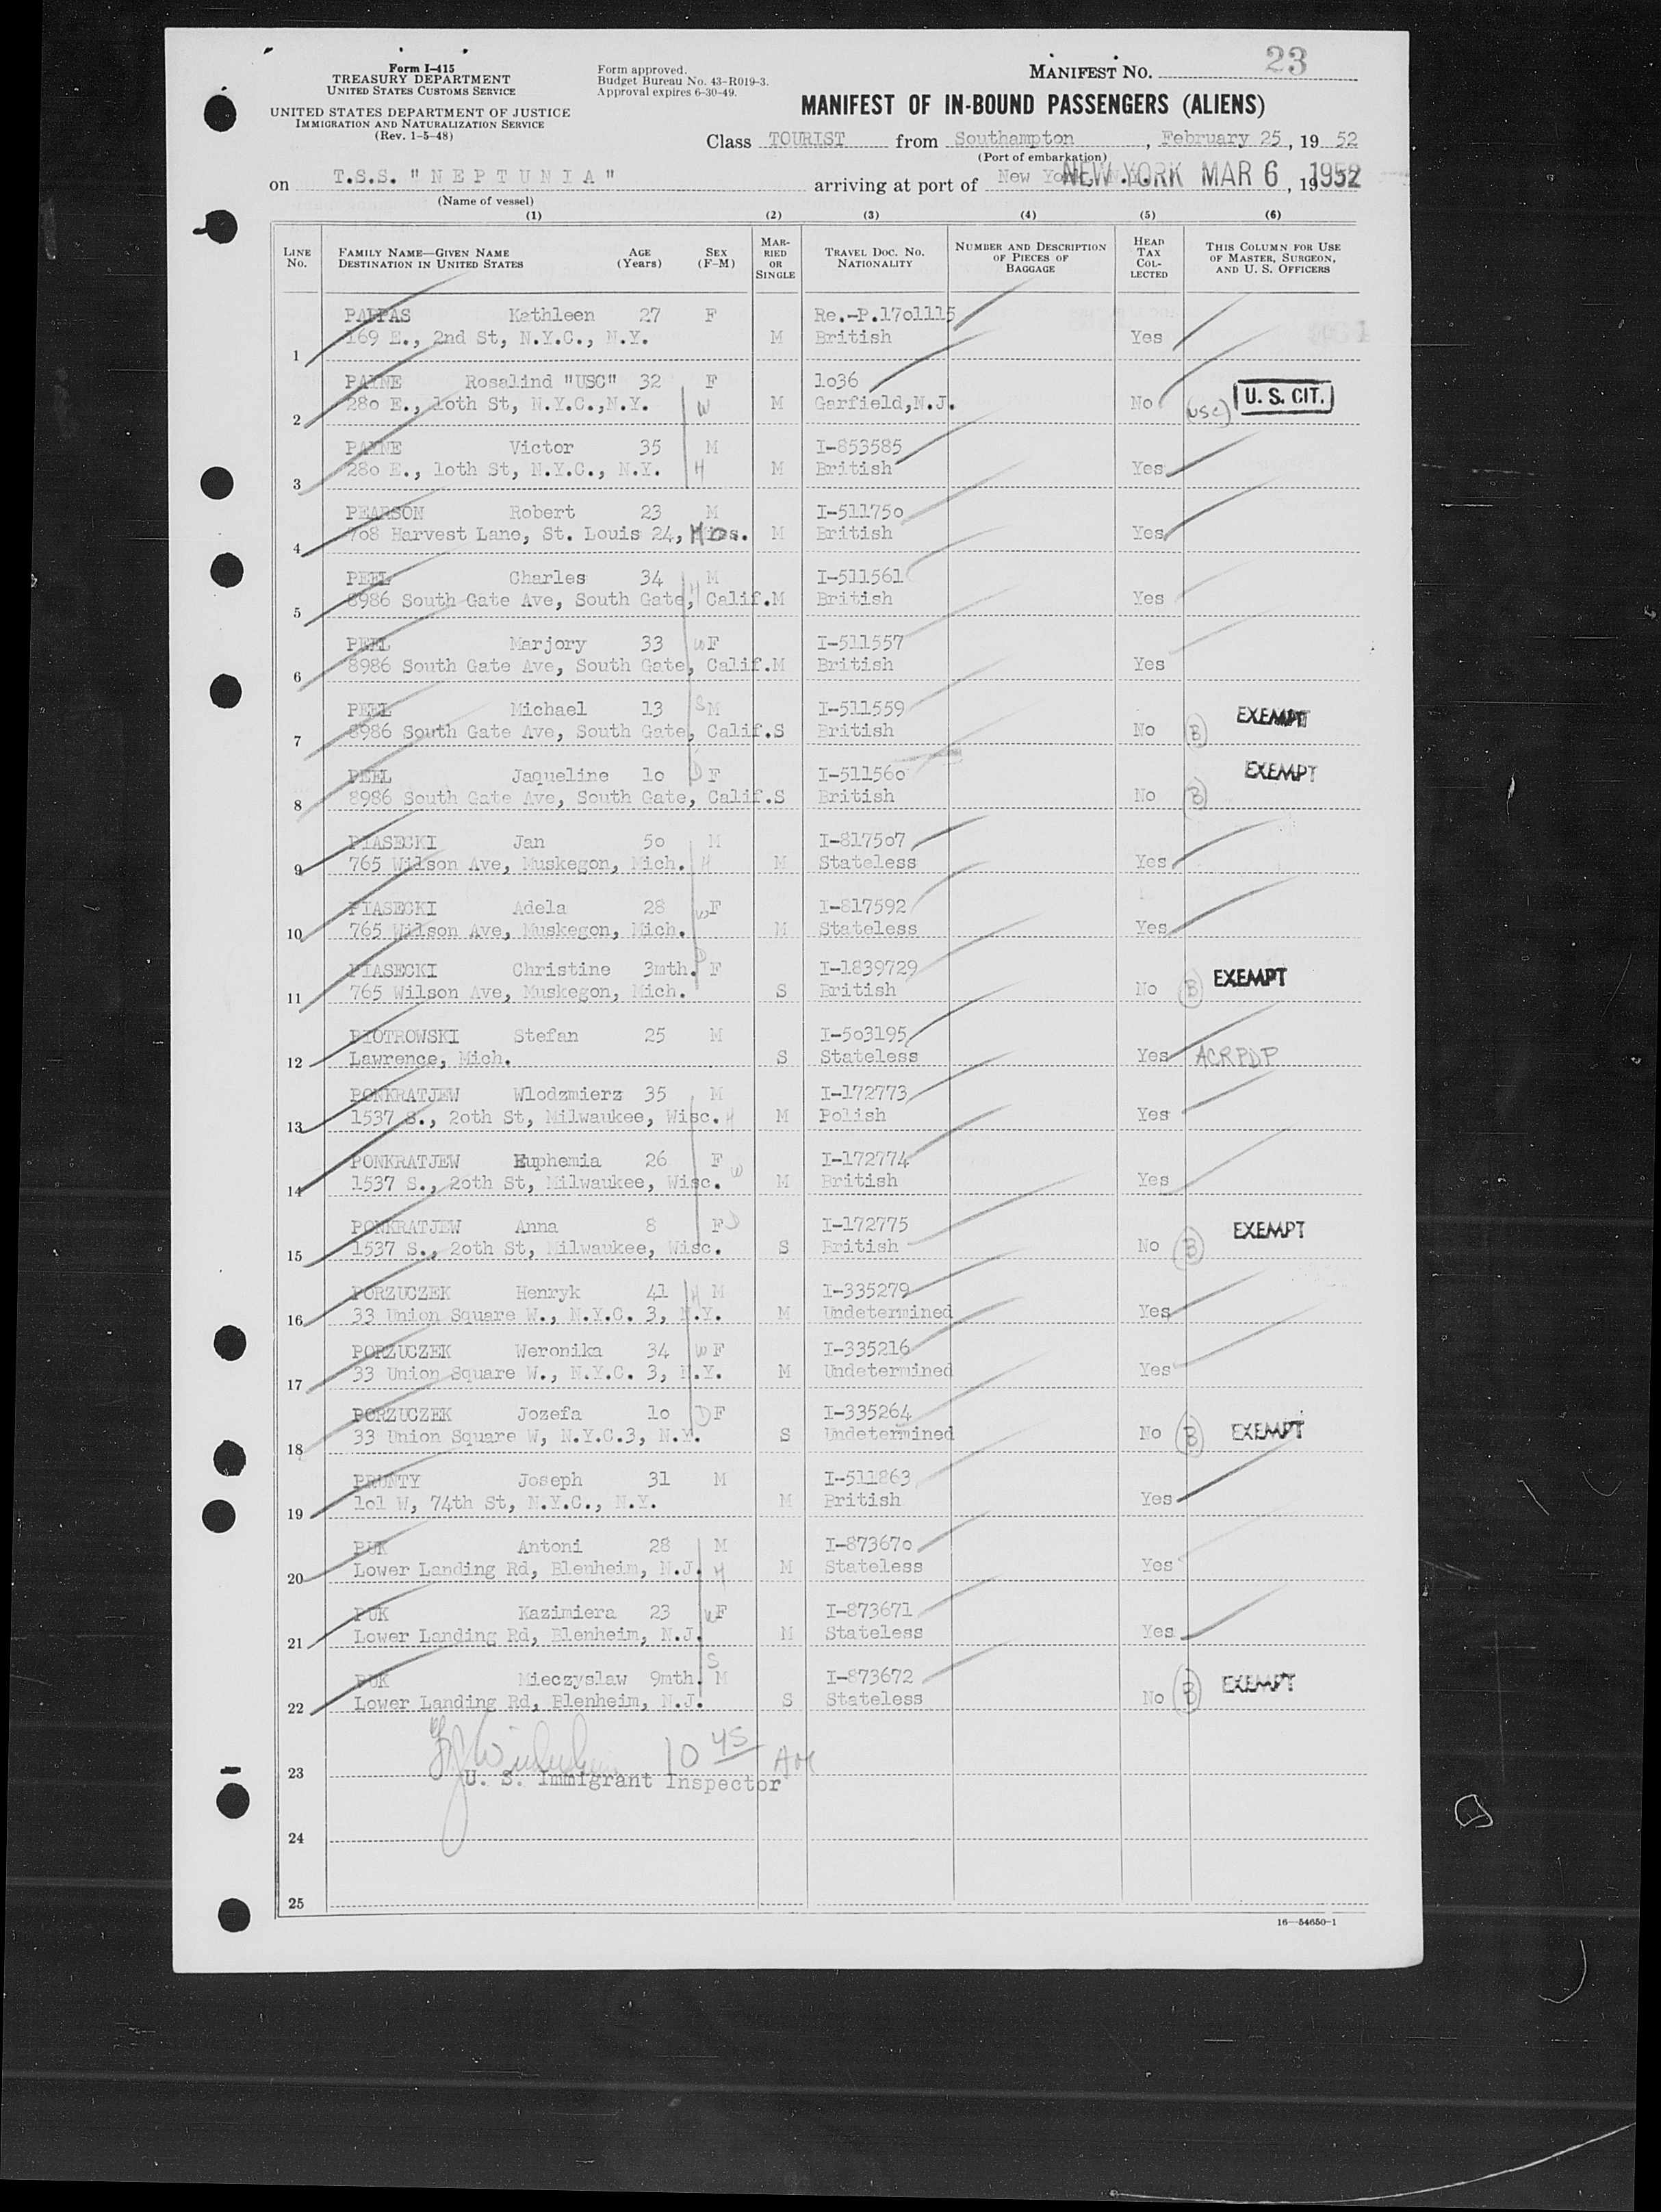 Form I-415
TREASURY DEPARTMENT
UNITED STATES CUSTOMS SERVICE
UNITED STATES DEPARTMENT OF JUSTICE
IMMIGRATION AND NATURALIZATION SERVICE
(Rev. 1-5-48)
Form approved.
Budget Bureau No. 43-R019-3.
Approval expires 6-30-49.
MANIFEST NO. 23
MANIFEST OF IN-BOUND PASSENGERS (ALIENS)
Class TOURIST from Southampton, February 25, 19 52
(Port of embarkation)
on T.S.S. "NEPTUNIA" arriving at port of New York NEW YORK MAR 6, 19 1952
(Name of vessel)
(1) (2) (3) (4) (5) (6)
LINE No. FAMILY NAME—GIVEN NAME DESTINATION IN UNITED STATES AGE (Years) SEX (F-M) MARRIED OR SINGLE TRAVEL DOC. NO. NATIONALITY NUMBER AND DESCRIPTION OF PIECES OF BAGGAGE HEAD TAX COLLECTED THIS COLUMN FOR USE OF MASTER, SURGEON, AND U. S. OFFICERS
PAPPAS Kathleen 27 F Re.-P.17o1115
1 169 E., 2nd St, N.Y.C., N.Y. M British Yes
PAYNE Rosalind "USC" 32 F 1o36
2 28o E., 1oth St, N.Y.C.,N.Y. W M Garfield,N.J. No (USC) U. S. CIT.
PAYNE Victor 35 M I-853585
3 28o E., 1oth St, N.Y.C., N.Y. H M British Yes
PEARSON Robert 23 M I-51175o
4 7o8 Harvest Lane, St. Louis 24, Mos. M British Yes
PEEL Charles 34 M I-511561
5 8986 South Gate Ave, South Gate, Calif. H M British Yes
PEEL Marjory 33 W F I-511557
6 8986 South Gate Ave, South Gate, Calif. M British Yes
PEEL Michael 13 S M I-511559 EXEMPT
7 8986 South Gate Ave, South Gate, Calif. S British No B
PEEL Jaqueline 1o D F I-51156o EXEMPT
8 8986 South Gate Ave, South Gate, Calif. S British No B
PIASECKI Jan 5o M I-8175o7
9 765 Wilson Ave, Muskegon, Mich. H M Stateless Yes
PIASECKI Adela 28 W F I-817592
10 765 Wilson Ave, Muskegon, Mich. M Stateless Yes
PIASECKI Christine 3mth. D F I-1839729 EXEMPT
11 765 Wilson Ave, Muskegon, Mich. S British No B
PIOTROWSKI Stefan 25 M I-5o3195
12 Lawrence, Mich. S Stateless Yes ACRPDP
PONKRATJEW Wlodzmierz 35 M I-172773
13 1537 S., 2oth St, Milwaukee, Wisc. H M Polish Yes
PONKRATJEW Euphemia 26 F W I-172774
14 1537 S., 2oth St, Milwaukee, Wisc. M British Yes
PONKRATJEW Anna 8 F D I-172775 EXEMPT
15 1537 S., 2oth St, Milwaukee, Wisc. S British No B
PORZUCZEK Henryk 41 H M I-335279
16 33 Union Square W., N.Y.C. 3, N.Y. M Undetermined Yes
PORZUCZEK Weronika 34 W F I-335216
17 33 Union Square W., N.Y.C. 3, N.Y. M Undetermined Yes
PORZUCZEK Jozefa 1o D F I-335264
18 33 Union Square W, N.Y.C.3, N.Y. S Undetermined No B EXEMPT
PRUNTY Joseph 31 M I-511863
19 1o1 W, 74th St, N.Y.C., N.Y. M British Yes
PUK Antoni 28 M I-87367o
20 Lower Landing Rd, Blenheim, N.J. H M Stateless Yes
PUK Kazimiera 23 W F I-873671
21 Lower Landing Rd, Blenheim, N.J. M Stateless Yes
PUK Mieczyslaw 9mth. S M I-873672 EXEMPT
22 Lower Landing Rd, Blenheim, N.J. S Stateless No B
10 45 AM
23 U. S. Immigrant Inspector
24
25
16—54650-1